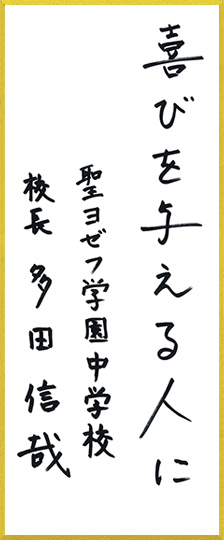 喜びを与える人に
聖ヨゼフ学園中学校
校長 多田信哉